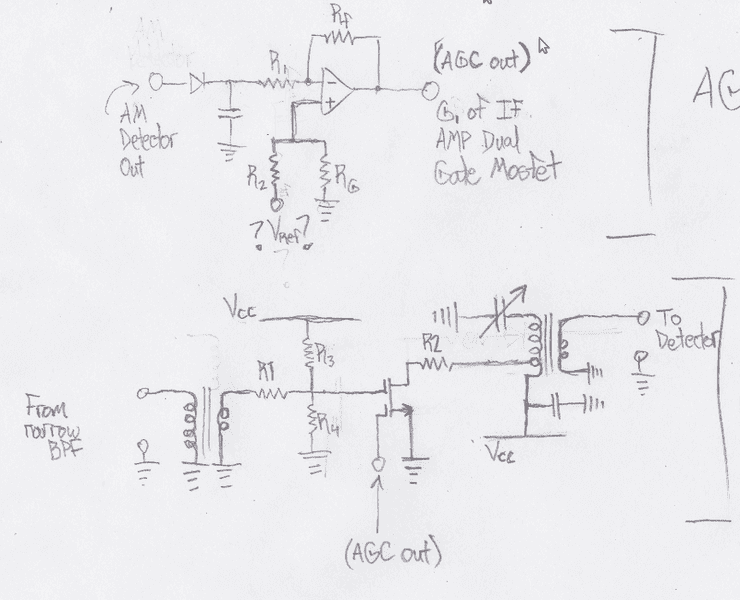 Rf
R1
(AGC out)
AGC
AM
Detector
Out
G, of IF
AMP Dual
Gate Mosfet
R2
RG
? VRef ?
Vcc
R3
R2
To
Detector
R1
From
narrow
BPF
R4
Vcc
(AGC out)